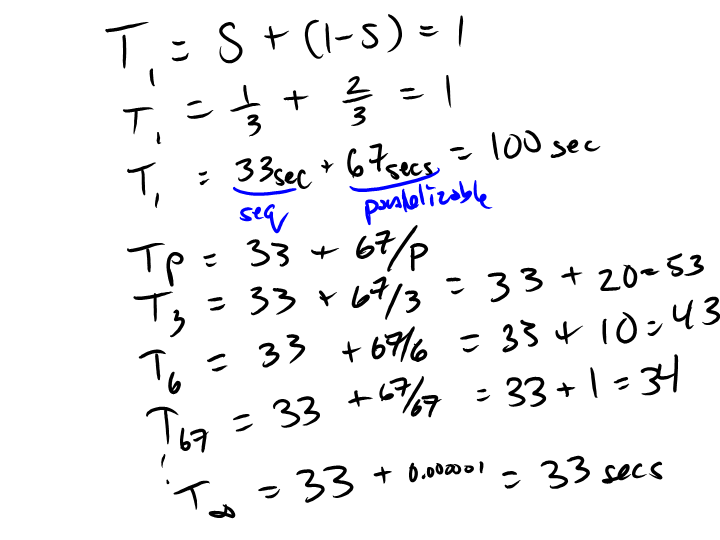 T₁ = S + (1-S) = 1
T₁ = 1/3 + 2/3 = 1
T₁ = 33sec + 67secs = 100 sec
seq parallelizable
Tp = 33 + 67/P
T₃ = 33 + 67/3 = 33 + 20 = 53
T₆ = 33 + 67/6 = 33 + 10 = 43
T₆₇ = 33 + 67/67 = 33 + 1 = 34
⋮
T∞ = 33 + 0.000001 = 33 secs